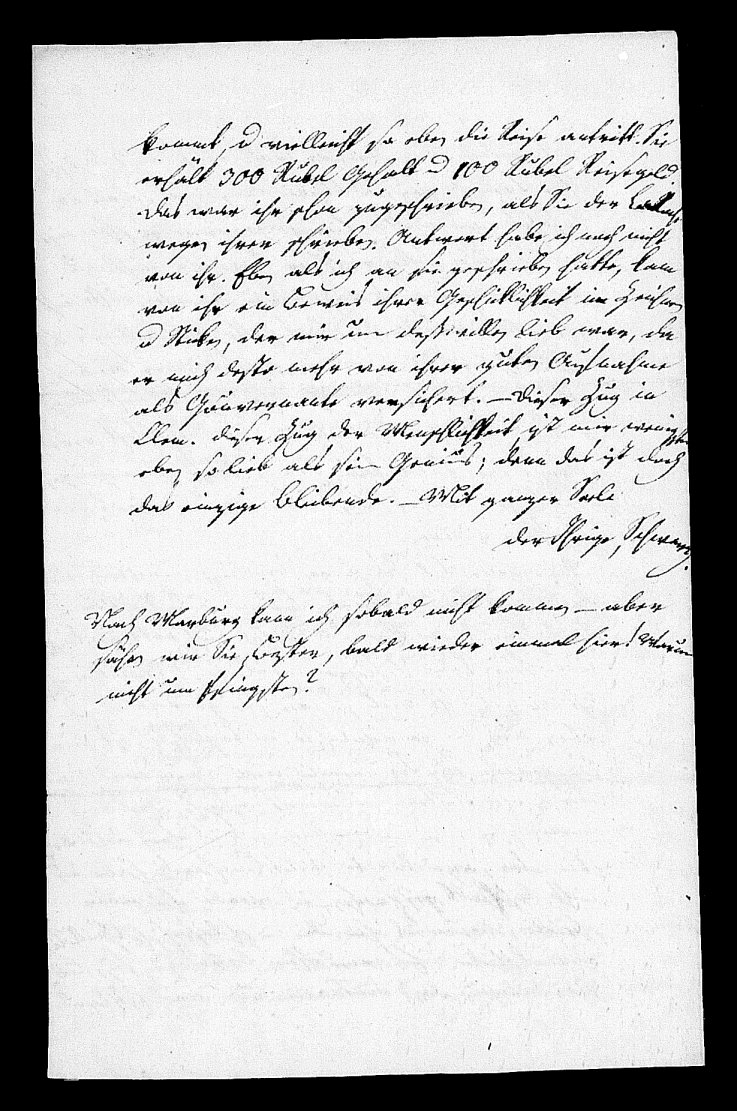 kommt, u vielleicht so eben die Reise antritt. Sie
erhält 300 Rubel Gehalt u 100 Rubel Reisegeld.
Das war ihr schon zugeschrieben, als Sie der
wegen ihrer schrieben. Antwort habe ich noch nicht
von ihr. Eben als ich an sie geschrieben hatte, kam
von ihr ein Beweis ihrer Geschicklichkeit im Zeichnen
u Sticken, der mir um deßwillen lieb war, da
er mich desto mehr von ihrer guten Aufnahme
als Gouvernante versichert. — Dieser Zug in
Clem. dieser Zug der Menschlichkeit ist mir wenigstens
eben so lieb als sein Genius; denn das ist doch
das einzige bleibende. — Mit ganzer Seele
der Ihrige, Schwarz.
Nach Marburg kann ich sobald nicht kommen — aber
sähen wir Sie, bald wieder einmal hier! Warum
nicht um Pfingsten?